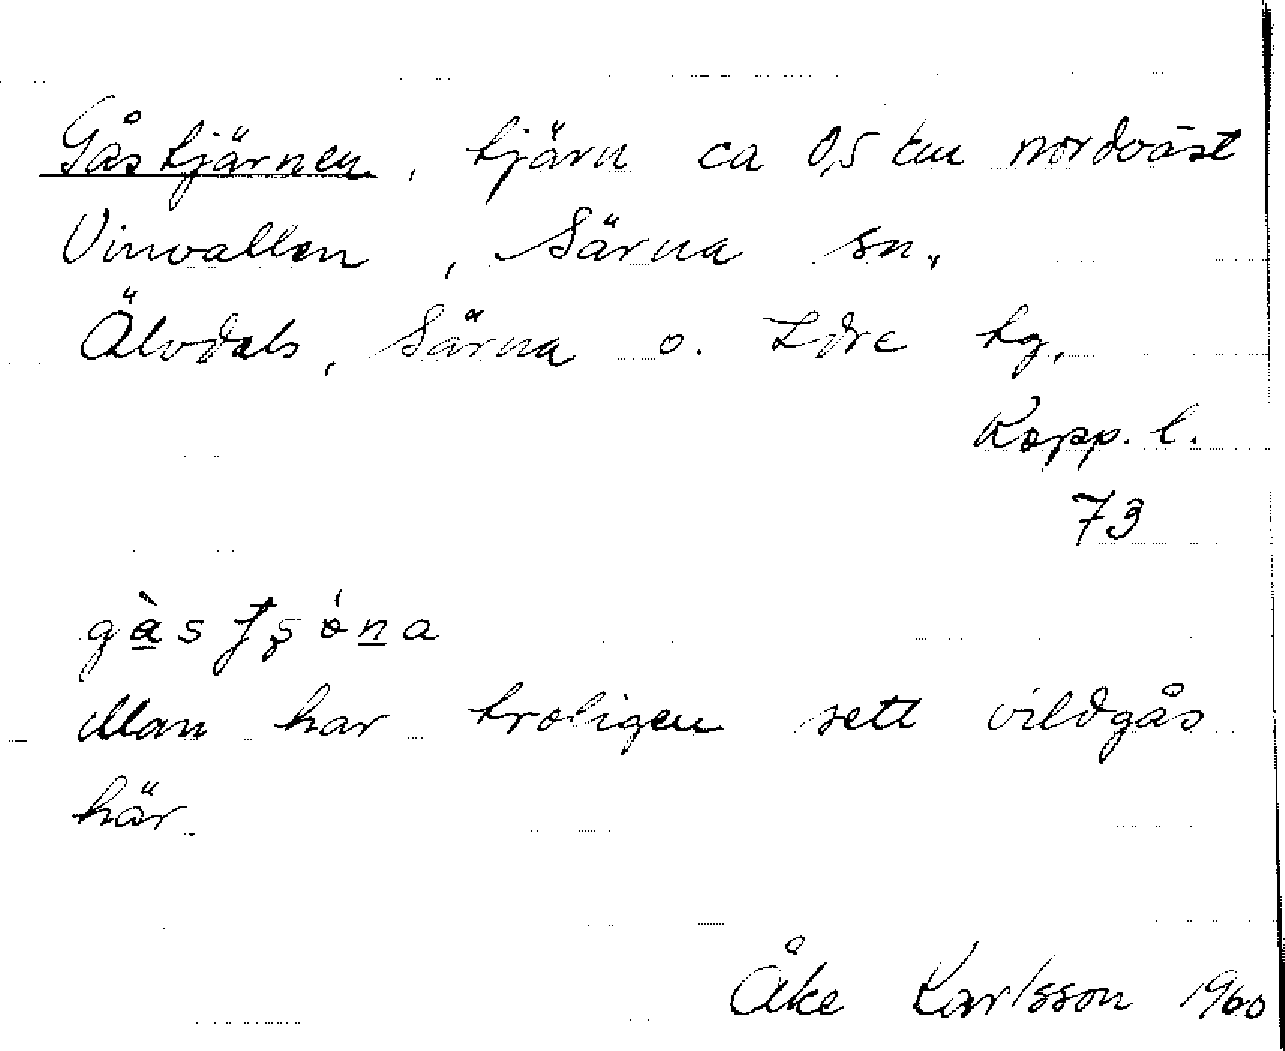 Gåstjärnen, tjärn ca 0,5 km nordväst
Vinvallen, Särna sn,
Älvdals, Särna o. Idre tg,
Kopp. l.
73
Man har troligen sett vildgås
här.
Åke Karlsson 1960